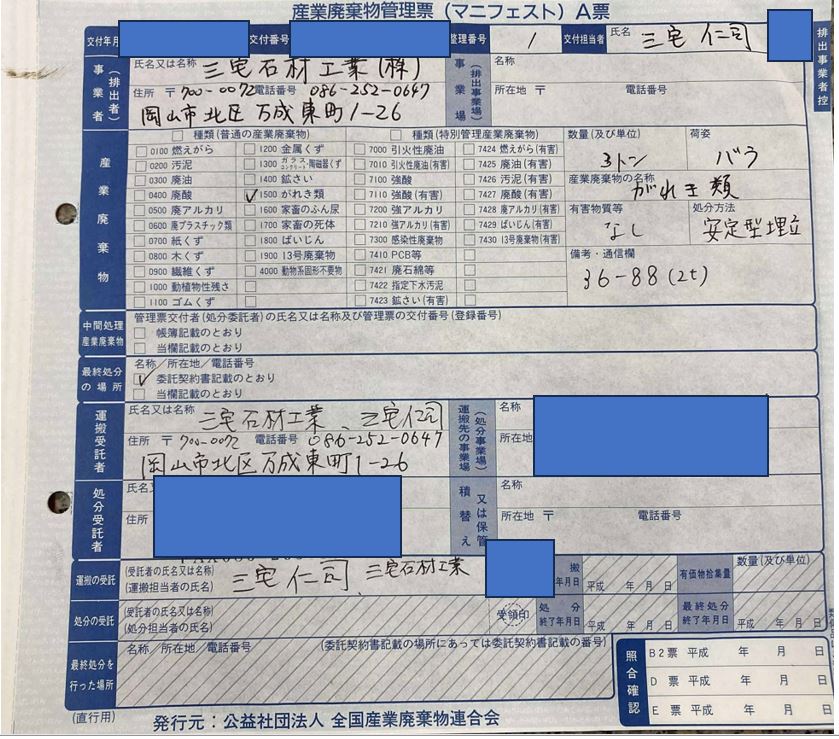 産業廃棄物管理票（マニフェスト）A票
交付年月
交付番号
整理番号 1
交付担当者 氏名 三宅 仁司
排出事業者控
事業者（排出者）
氏名又は名称 三宅石材工業(株)
住所 〒700-0072 電話番号 086-252-0647
岡山市北区万成東町1-26
事業場（排出事業場）
名称
所在地 〒 電話番号
産業廃棄物
種類（普通の産業廃棄物）
0100 燃えがら
0200 汚泥
0300 廃油
0400 廃酸
0500 廃アルカリ
0600 廃プラスチック類
0700 紙くず
0800 木くず
0900 繊維くず
1000 動植物性残さ
1100 ゴムくず
1200 金属くず
1300 ガラス・コンクリート・陶磁器くず
1400 鉱さい
✓ 1500 がれき類
1600 家畜のふん尿
1700 家畜の死体
1800 ばいじん
1900 13号廃棄物
4000 動物系固形不要物
種類（特別管理産業廃棄物）
7000 引火性廃油
7010 引火性廃油(有害)
7100 強酸
7110 強酸(有害)
7200 強アルカリ
7210 強アルカリ(有害)
7300 感染性廃棄物
7410 PCB等
7421 廃石綿等
7422 指定下水汚泥
7423 鉱さい(有害)
7424 燃えがら(有害)
7425 廃油(有害)
7426 汚泥(有害)
7427 廃酸(有害)
7428 廃アルカリ(有害)
7429 ばいじん(有害)
7430 13号廃棄物(有害)
数量(及び単位) 3トン
荷姿 バラ
産業廃棄物の名称 がれき類
有害物質等 なし
処分方法 安定型埋立
備考・通信欄
36-88(2t)
中間処理産業廃棄物
管理票交付者(処分委託者)の氏名又は名称及び管理票の交付番号(登録番号)
帳簿記載のとおり
当欄記載のとおり
最終処分の場所
名称／所在地／電話番号
✓ 委託契約書記載のとおり
当欄記載のとおり
運搬受託者
氏名又は名称 三宅石材工業、三宅仁司
住所 〒700-0072 電話番号 086-252-0647
岡山市北区万成東町1-26
運搬先の事業場（処分事業場）
名称
所在地
処分受託者
氏名
住所
積替え又は保管
名称
所在地 〒 電話番号
運搬の受託
(受託者の氏名又は名称)
(運搬担当者の氏名) 三宅 仁司、三宅石材工業
搬
年月日
平成 年 月 日
有価物拾集量
数量(及び単位)
処分の受託
(受託者の氏名又は名称)
(処分担当者の氏名)
受領印
処分終了年月日
平成 年 月 日
最終処分終了年月日
平成 年 月 日
最終処分を行った場所
名称／所在地／電話番号 (委託契約書記載の場所にあっては委託契約書記載の番号)
照合確認
B2票 平成 年 月 日
D 票 平成 年 月 日
E 票 平成 年 月 日
(直行用)
発行元：公益社団法人 全国産業廃棄物連合会